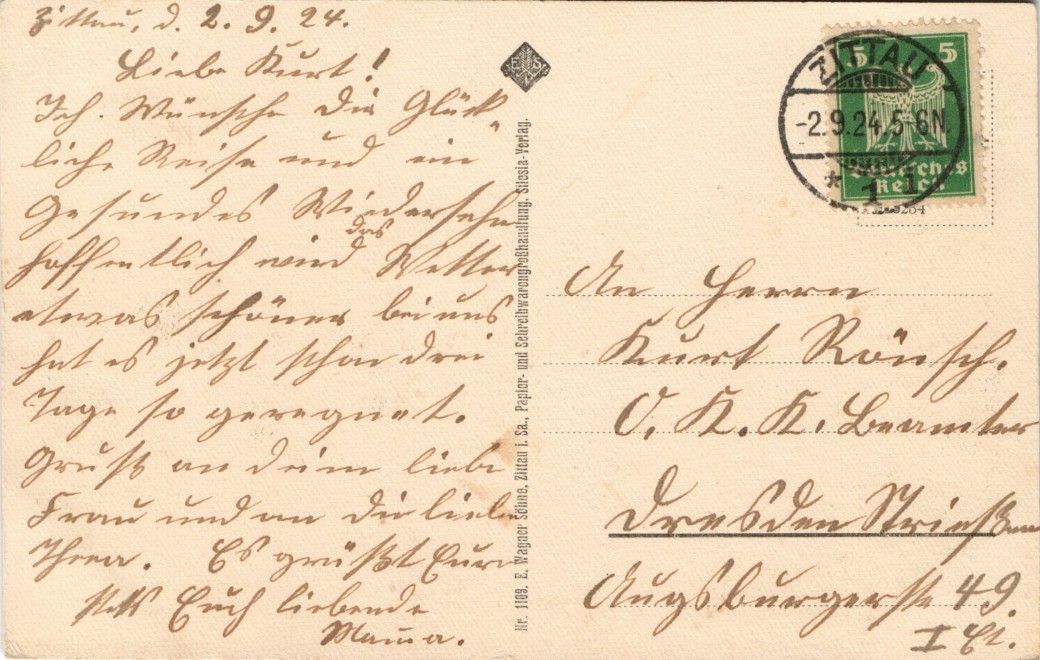 Zittau, d. 2. 9. 24.
Liebe Kurt!
Ich Wünsche die Glück-
liche Reise und ein
Gesundes Wiedersehn
hoffentlich wird das Wetter
etwas schöner bei uns
hat es jetzt schon drei
Tage so geregnet.
Gruß an dein liebe
Frau und an die liebe
Thea. Es grüßt Eure
stets Euch liebende
Mama.
E S
Nr. 1109. E. Wagner Söhne, Zittau i. Sa., Papier- und Schreibwarengroßhandlung. Silesia-Verlag.
ZITTAU
-2.9.24.5-6N
* 1
5 5
Deutsches
Reich
An Herrn
Kurt Rönsch.
O. K. K. Beamter
Dresden Strießen
Augsburgerstr 49.
I Et.